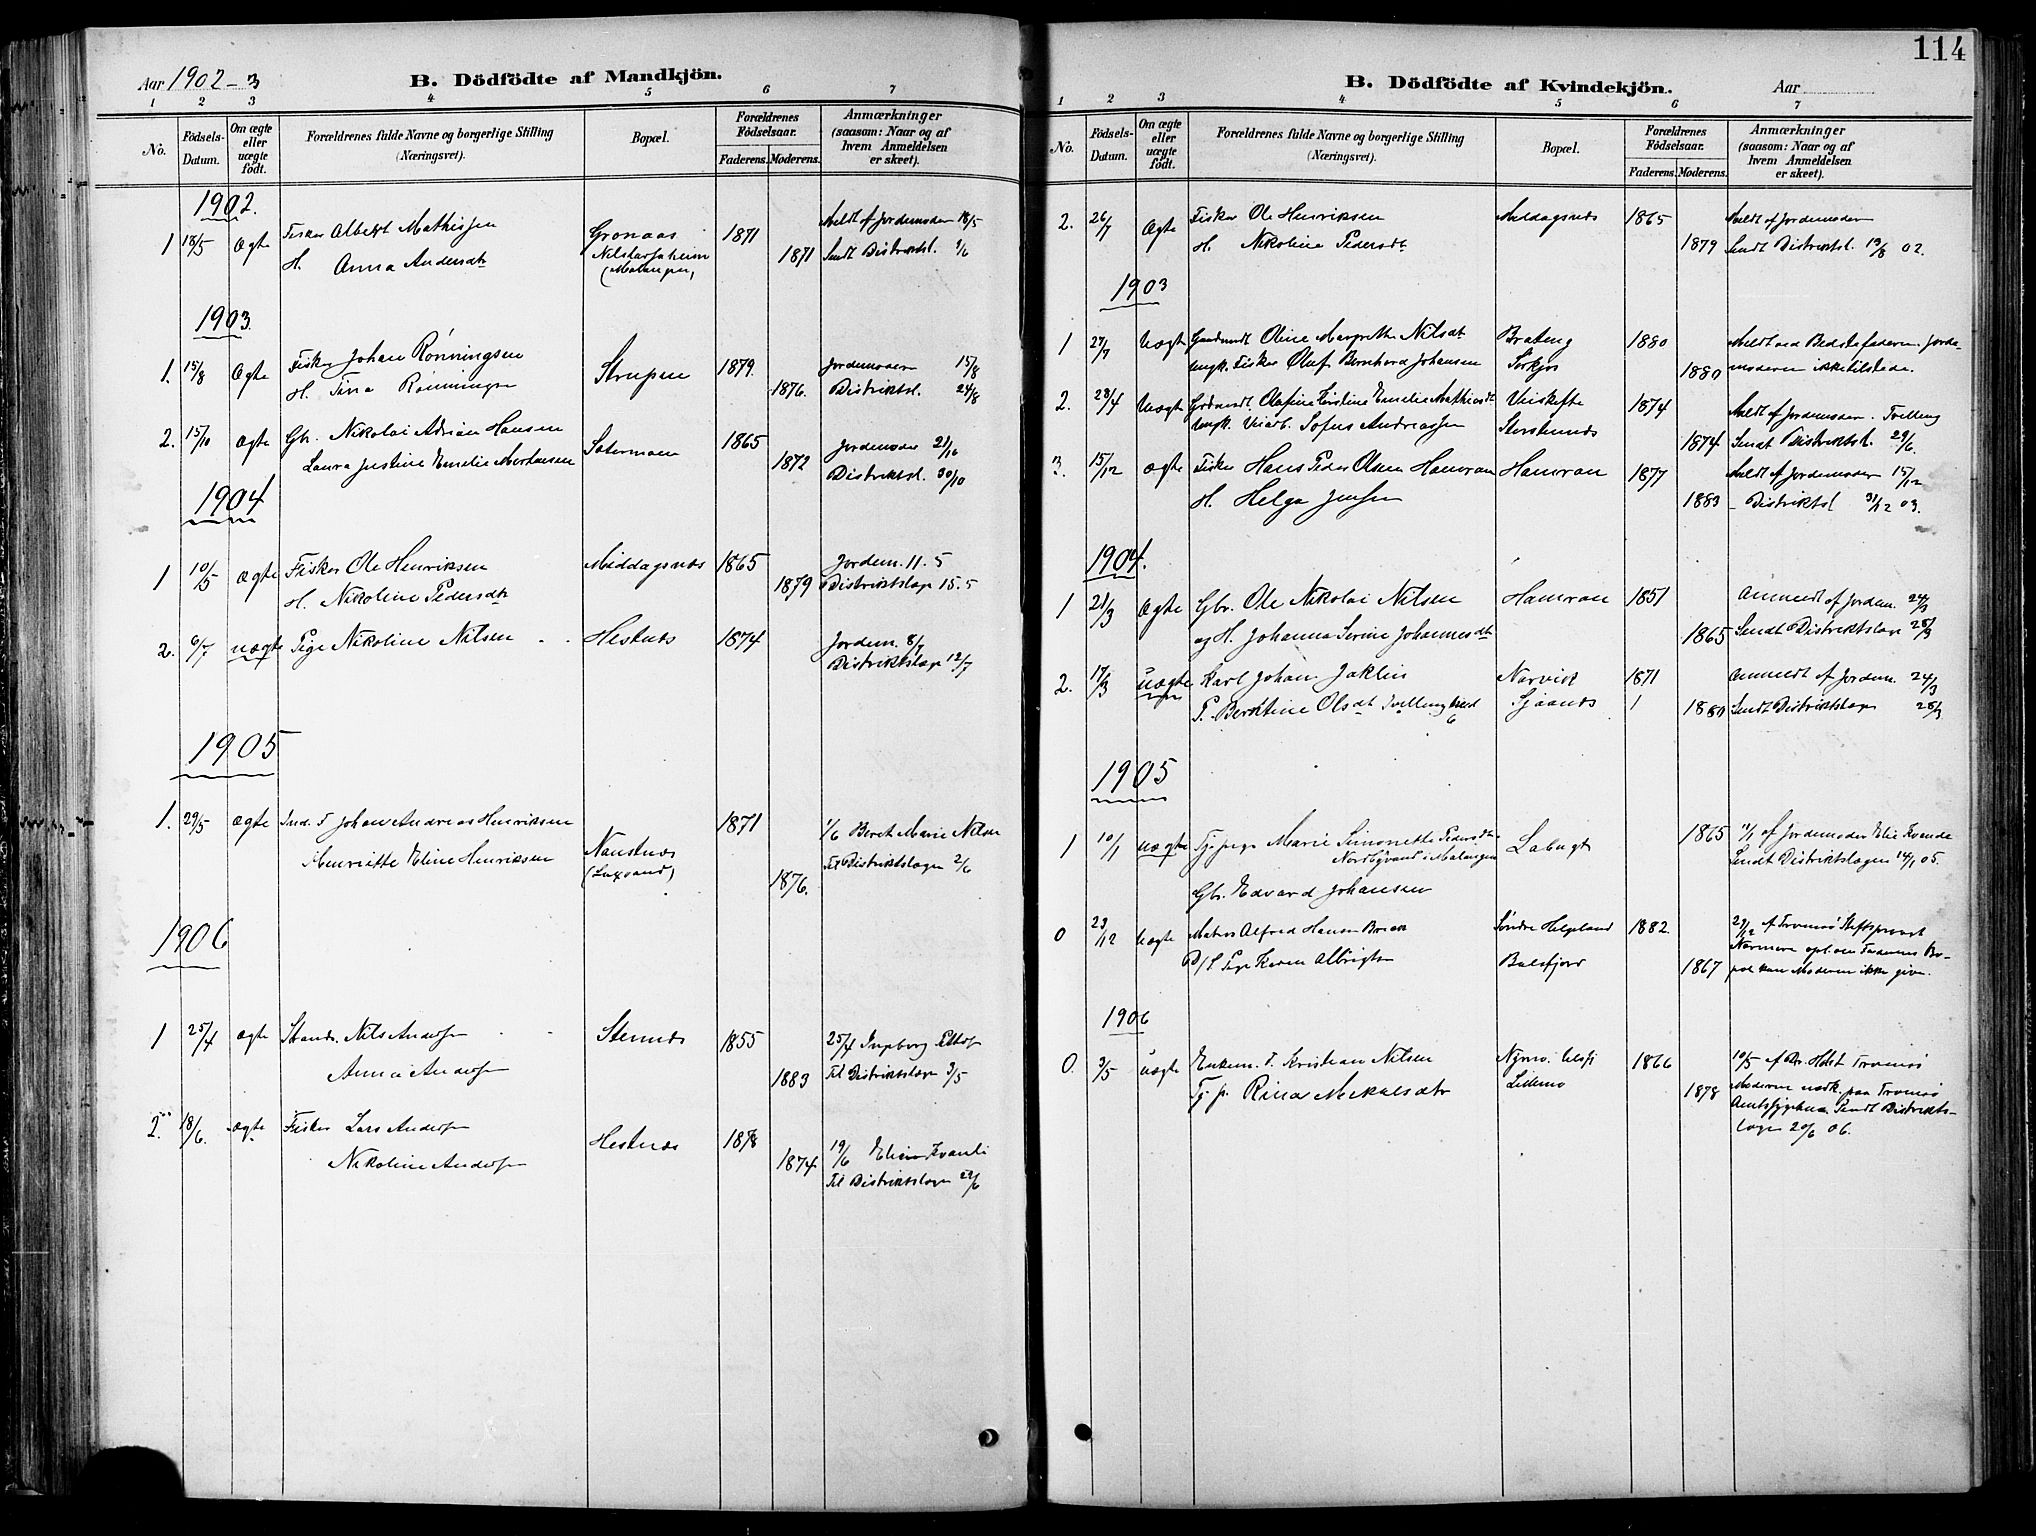 Aar 1902-3
B. Dödfödte af Mandkjön.
1 2 3 4 5 6 7
No.
Födsels-Datum.
Om ægte eller uægte födt.
Forældrenes fulde Navne og borgerlige Stilling (Næringsvei).
Bopæl.
Forældrenes Födselsaar.
Faderens. Moderens.
Anmærkninger (saasom: Naar og af hvem Anmeldelsen er skeet).
1902.
1 18/5 Ægte Fisker Albert Mathissen Gronaas 1871 Meldt af Jordemoder 18/5
H. Anna Andersdtr 1871 Sendt Distriktsl. 1/6
(Malangen)
1903.
1. 15/8 Ægte Fisker Johan Rönningsen Strupen 1879. Jordemoder 15/8
H. Tina Rönningsen 1876. Distriktsl. 24/8
2. 15/10 Ægte Gbr. Nikolai Adrian Hansen Sätermoen 1865 Jordemoder 21/10
Laura Justine Emelie Mortensen 1872 Distriktsl. 30/10
1904
1 10/5 Ægte Fisker Ole Henriksen Middagsnes 1865 Jordem. 11.5
H. Nikoline Pedersdtr 1879 Distriktslæge 15.5
2. 6/7 uægte Pige Nikoline Nilsen Hestnæs 1874 Jordem. 8/7
Distriktslæge 12/7
1905
1. 29/5 Ægte Ind. F Johan Andreas Henriksen 1871 1/6 Beret Marie Nilsen
Henriette Eline Henriksen Naustnæs 1876. Til Distriktslægen 2/6
(Laxvand)
1906
1 25/4 Ægte Strands. Nils Anders Stennæs 1855 25/4 Ingeborg
Anna Anders 1883 Til Distriktslæge 3/5
2. 18/6. Ægte Fisker Lars Anders Hestnæs 1878 19/6 Eline Kvanli
Nikoline Anders 1874 Til Distriktslægen 22/6
114
B. Dödfödte af Kvindekjön.
Aar
1 2 3 4 5 6 7
No.
Födsels-Datum.
Om ægte eller uægte födt.
Forældrenes fulde Navne og borgerlige Stilling (Næringsvei).
Bopæl.
Forældrenes Födselsaar.
Faderens. Moderens.
Anmærkninger (saasom: Naar og af hvem Anmeldelsen er skeet).
2. 26/7 Ægte Fisker Ole Henriksen Middagsnes 1865 Meldt af Jordemoder
H. Nikoline Pedersdt 1879 Sendt Distriktsl. 19/8 02.
1903
1 27/7 Uægt Oline Margrethe Nilsdt Brateng 1880 Meldt ved Bedstefaderen, Jorde-
Ungk. Fisker Oluf Bernhard Johansen Sörkjos 1880 moderen ikke tilstede.
2. 28/4 Uægte Olafine Kirstine Emelie Mathisdt 1874 Meldt af Jordemoder. Tvilling
Ungk. Sofus Andreassen Storstennæs 1874 Sendt Distriktsl. 29/6.
3. 15/12 Ægte Fisker Hans Peder Olsen Hamran Hamran 1877 Meldt af Jordemoder 15/12
H. Helga Jensen 1883 - Distriktsl 31/12 03.
1904.
1 21/3 Ægte Gbr. Ole Nikolai Nilsen Hamran 1851 Anmeldt af Jordem. 24/3
og H. Johanna Serine Johannesdt 1865 Sendt Distriktslæge 28/3
2. 17/3 uægte Karl Johan Jaklin Narvik 1871 Anmeldt af Jordem. 24/3
P. Berntine Olsdt Tvilling Sjöanes 1880 Sendt Distriktslæge 28/3
1905
1 10/1 uægte Tjpige Marie Simonette Pedersdtr Labugt 1865 11/1 af Jordemoder Elie Kvende
Nordbyvand i Malangen Sendt Distriktslægen 14/1 05.
Gbr. Edvard Johansen
0 23/12 Uægte Matros Alfred Hansen Söndre Helgeland 1882 29/12 af Tromsö Stiftsprovst
Pige Karen Albrigtsen Balsfjord 1867 Nærmere opl. om Faderens Bo-
pæl kan Moderen ikke give.
1906
0. 3/5 uægte Enkem. F. Kristian Nilsen 1866 10/5 af Dr. Holst Tromsö
Tj. p. Rina Mekalsdtr Lillemo 1878 Moderen nedk. paa Tromsö
Amtssygehus. Sendt Distrikts-
lægen 20/6 06.